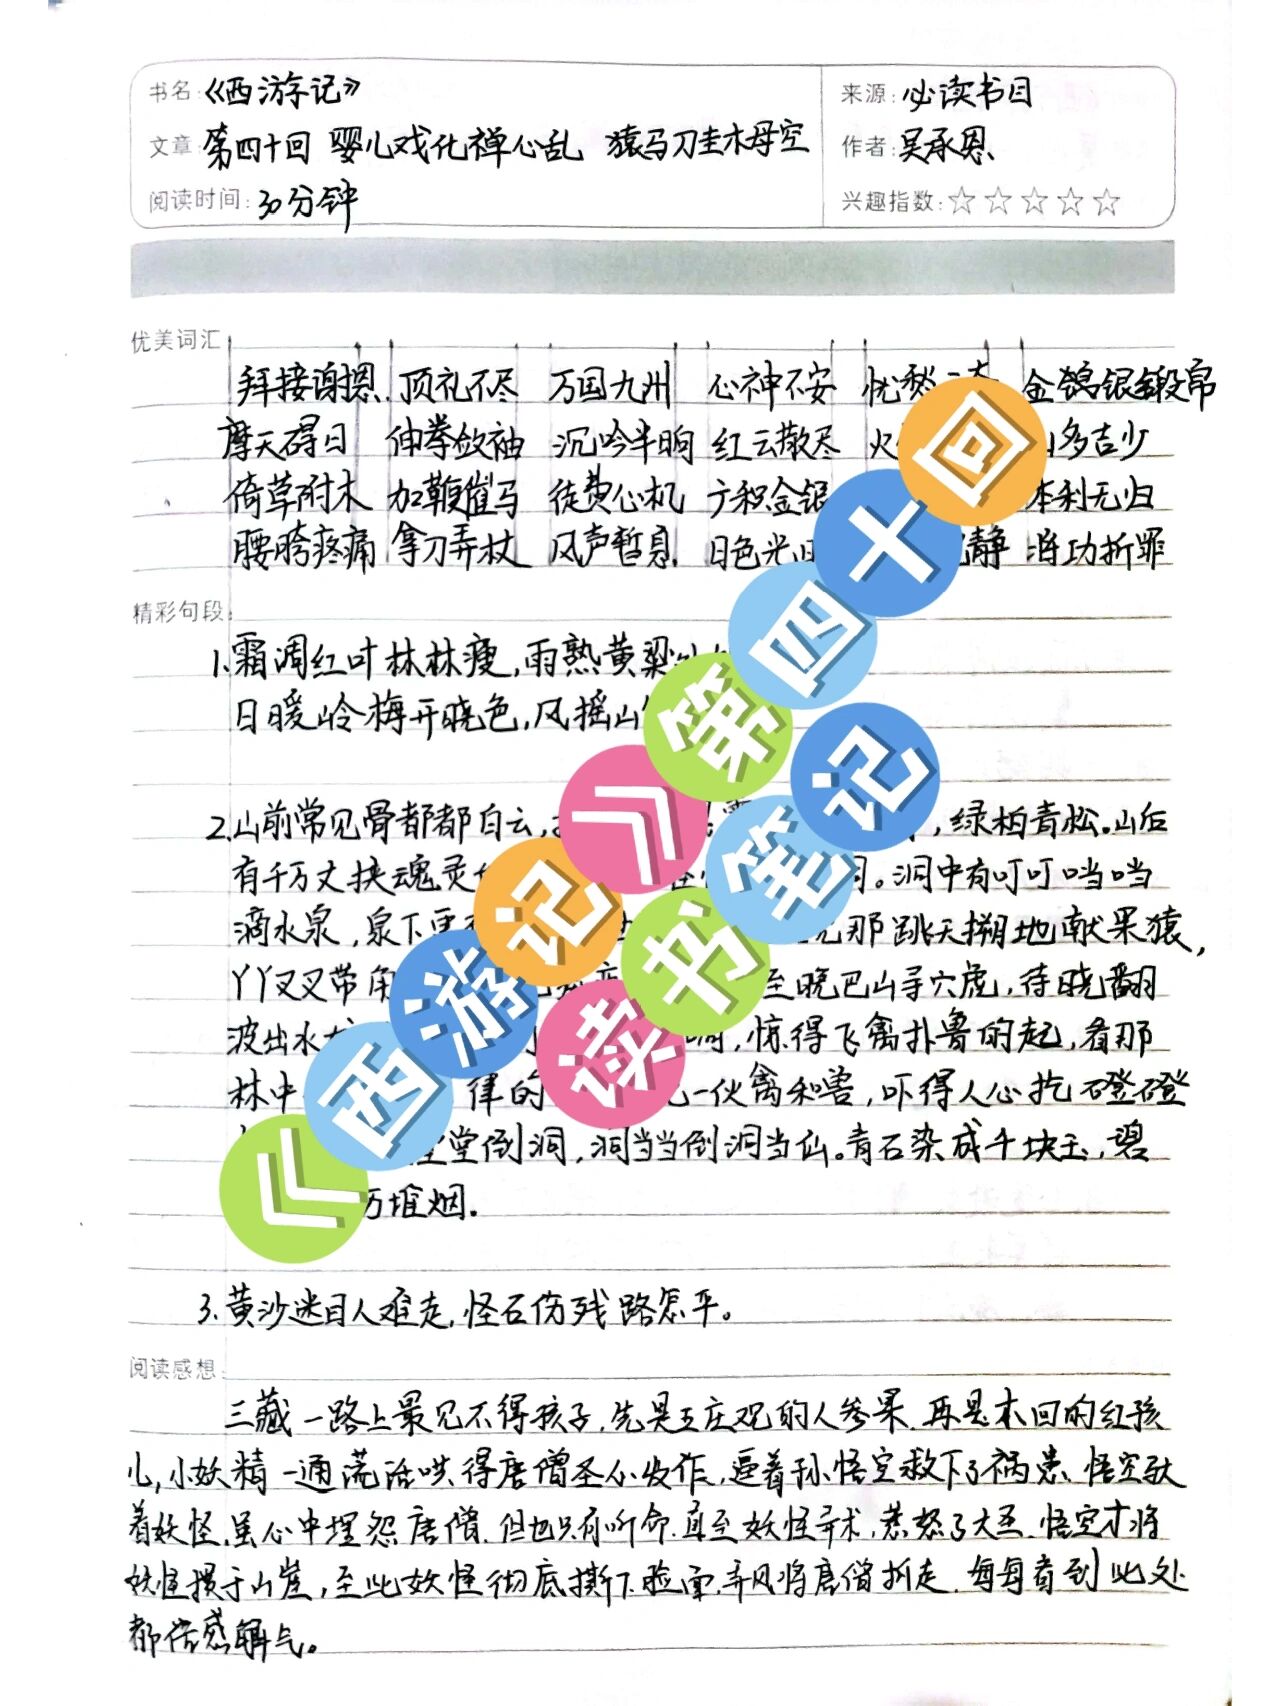 书名:《西游记》
来源:必读书目
文章:第四十回 婴儿戏化禅心乱 猿马刀圭木母空
作者:吴承恩
阅读时间:30分钟
兴趣指数:☆☆☆☆☆
优美词汇
拜接谢恩 顶礼不尽 万国九州 心神不安 忧愁 金
摩天碍日 伸拳敛袖 沉吟半晌 红云散尽 火 多吉少
倚草附木 加鞭催马 徒费心机 方积金银 本利无归
腰胯疼痛 拿刀弄杖 风声暂息 日色光 静 将功折罪
精彩句段:
1.霜凋红叶林林瘦,雨熟黄粱
日暖岭梅开晓色,风摇山
2.山前常见骨都都白云, ,绿柏青松。山后
有千万丈挟魂灵 。洞中有叮叮当当
滴水泉,泉下更 那跳天搠地献果猿,
丫丫叉叉带角 至晚巴山寻穴虎,待晓翻
波出水 ,惊得飞禽扑鲁的起,看那
林中 律的 一伙禽和兽,吓得人心扢磴磴
堂倒洞,洞当当倒洞当仙。青石染成千块玉,碧
万堆烟。
3.黄沙迷目人难走,怪石伤残路怎平。
阅读感想:
三藏一路上最见不得孩子,先是五庄观的人参果,再是本回的红孩
儿,小妖精一通谎话哄得唐僧圣心发作,逼着孙悟空救下了祸患、悟空驮
着妖怪,虽心中埋怨唐僧,但也只有听命,直至妖怪弄术,惹怒了大圣,悟空才将
妖怪掼于山崖,至此妖怪彻底撕下脸面,弄风将唐僧抓走,每每看到此处
都倍感解气。
《西游记》第四十回
读书笔记